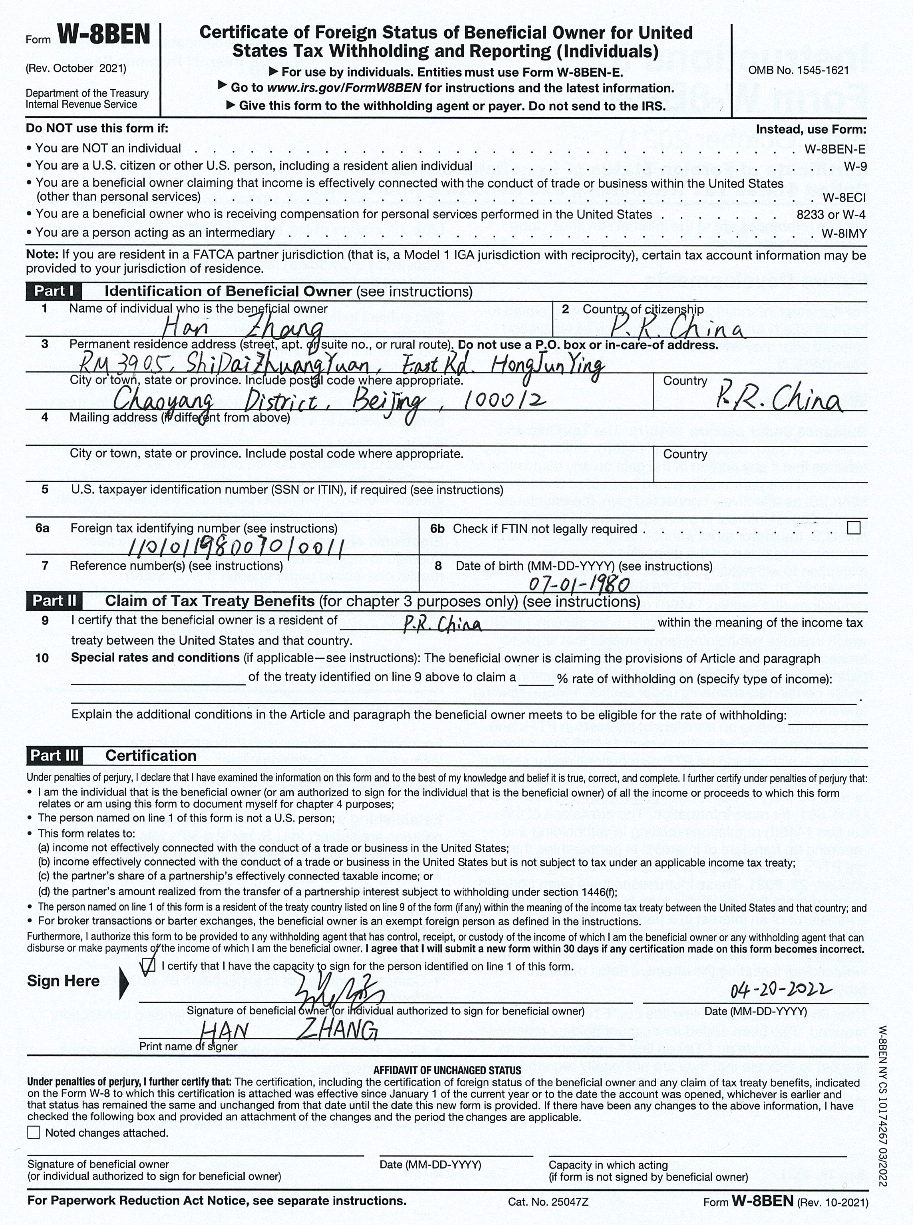 Form W-8BEN
(Rev. October 2021)
Department of the Treasury
Internal Revenue Service
Certificate of Foreign Status of Beneficial Owner for United
States Tax Withholding and Reporting (Individuals)
▶ For use by individuals. Entities must use Form W-8BEN-E.
▶ Go to www.irs.gov/FormW8BEN for instructions and the latest information.
▶ Give this form to the withholding agent or payer. Do not send to the IRS.
OMB No. 1545-1621
Do NOT use this form if: Instead, use Form:
• You are NOT an individual . . . . . . . . . . W-8BEN-E
• You are a U.S. citizen or other U.S. person, including a resident alien individual . . . . . . . . . . W-9
• You are a beneficial owner claiming that income is effectively connected with the conduct of trade or business within the United States
(other than personal services) . . . . . . . . . . W-8ECI
• You are a beneficial owner who is receiving compensation for personal services performed in the United States . . . . . . . 8233 or W-4
• You are a person acting as an intermediary . . . . . . . . . . W-8IMY
Note: If you are resident in a FATCA partner jurisdiction (that is, a Model 1 IGA jurisdiction with reciprocity), certain tax account information may be
provided to your jurisdiction of residence.
Part I Identification of Beneficial Owner (see instructions)
1 Name of individual who is the beneficial owner
Han Zhang
2 Country of citizenship
P.R. China
3 Permanent residence address (street, apt. or suite no., or rural route). Do not use a P.O. box or in-care-of address.
RM 3905, ShiDaiZhuangYuan, East Rd. HongJunYing
City or town, state or province. Include postal code where appropriate.
Chaoyang District, Beijing, 100012
Country
P.R. China
4 Mailing address (if different from above)
City or town, state or province. Include postal code where appropriate.
Country
5 U.S. taxpayer identification number (SSN or ITIN), if required (see instructions)
6a Foreign tax identifying number (see instructions)
110101198007010011
6b Check if FTIN not legally required . . . . . . . . . .
7 Reference number(s) (see instructions)
8 Date of birth (MM-DD-YYYY) (see instructions)
07-01-1980
Part II Claim of Tax Treaty Benefits (for chapter 3 purposes only) (see instructions)
9 I certify that the beneficial owner is a resident of P.R. China within the meaning of the income tax
treaty between the United States and that country.
10 Special rates and conditions (if applicable—see instructions): The beneficial owner is claiming the provisions of Article and paragraph
of the treaty identified on line 9 above to claim a % rate of withholding on (specify type of income):
.
Explain the additional conditions in the Article and paragraph the beneficial owner meets to be eligible for the rate of withholding:
Part III Certification
Under penalties of perjury, I declare that I have examined the information on this form and to the best of my knowledge and belief it is true, correct, and complete. I further certify under penalties of perjury that:
• I am the individual that is the beneficial owner (or am authorized to sign for the individual that is the beneficial owner) of all the income or proceeds to which this form
relates or am using this form to document myself for chapter 4 purposes;
• The person named on line 1 of this form is not a U.S. person;
• This form relates to:
(a) income not effectively connected with the conduct of a trade or business in the United States;
(b) income effectively connected with the conduct of a trade or business in the United States but is not subject to tax under an applicable income tax treaty;
(c) the partner's share of a partnership's effectively connected taxable income; or
(d) the partner's amount realized from the transfer of a partnership interest subject to withholding under section 1446(f);
• The person named on line 1 of this form is a resident of the treaty country listed on line 9 of the form (if any) within the meaning of the income tax treaty between the United States and that country; and
• For broker transactions or barter exchanges, the beneficial owner is an exempt foreign person as defined in the instructions.
Furthermore, I authorize this form to be provided to any withholding agent that has control, receipt, or custody of the income of which I am the beneficial owner or any withholding agent that can
disburse or make payments of the income of which I am the beneficial owner. I agree that I will submit a new form within 30 days if any certification made on this form becomes incorrect.
Sign Here
☑ I certify that I have the capacity to sign for the person identified on line 1 of this form.
04-20-2022
Signature of beneficial owner (or individual authorized to sign for beneficial owner)
Date (MM-DD-YYYY)
HAN ZHANG
Print name of signer
AFFIDAVIT OF UNCHANGED STATUS
Under penalties of perjury, I further certify that: The certification, including the certification of foreign status of the beneficial owner and any claim of tax treaty benefits, indicated
on the Form W-8 to which this certification is attached was effective since January 1 of the current year or to the date the account was opened, whichever is earlier and
that status has remained the same and unchanged from that date until the date this new form is provided. If there have been any changes to the above information, I have
checked the following box and provided an attachment of the changes and the period the changes are applicable.
Noted changes attached.
Signature of beneficial owner
(or individual authorized to sign for beneficial owner)
Date (MM-DD-YYYY)
Capacity in which acting
(if form is not signed by beneficial owner)
For Paperwork Reduction Act Notice, see separate instructions. Cat. No. 25047Z Form W-8BEN (Rev. 10-2021)
W-8BEN NY CS 10174267 03/2022